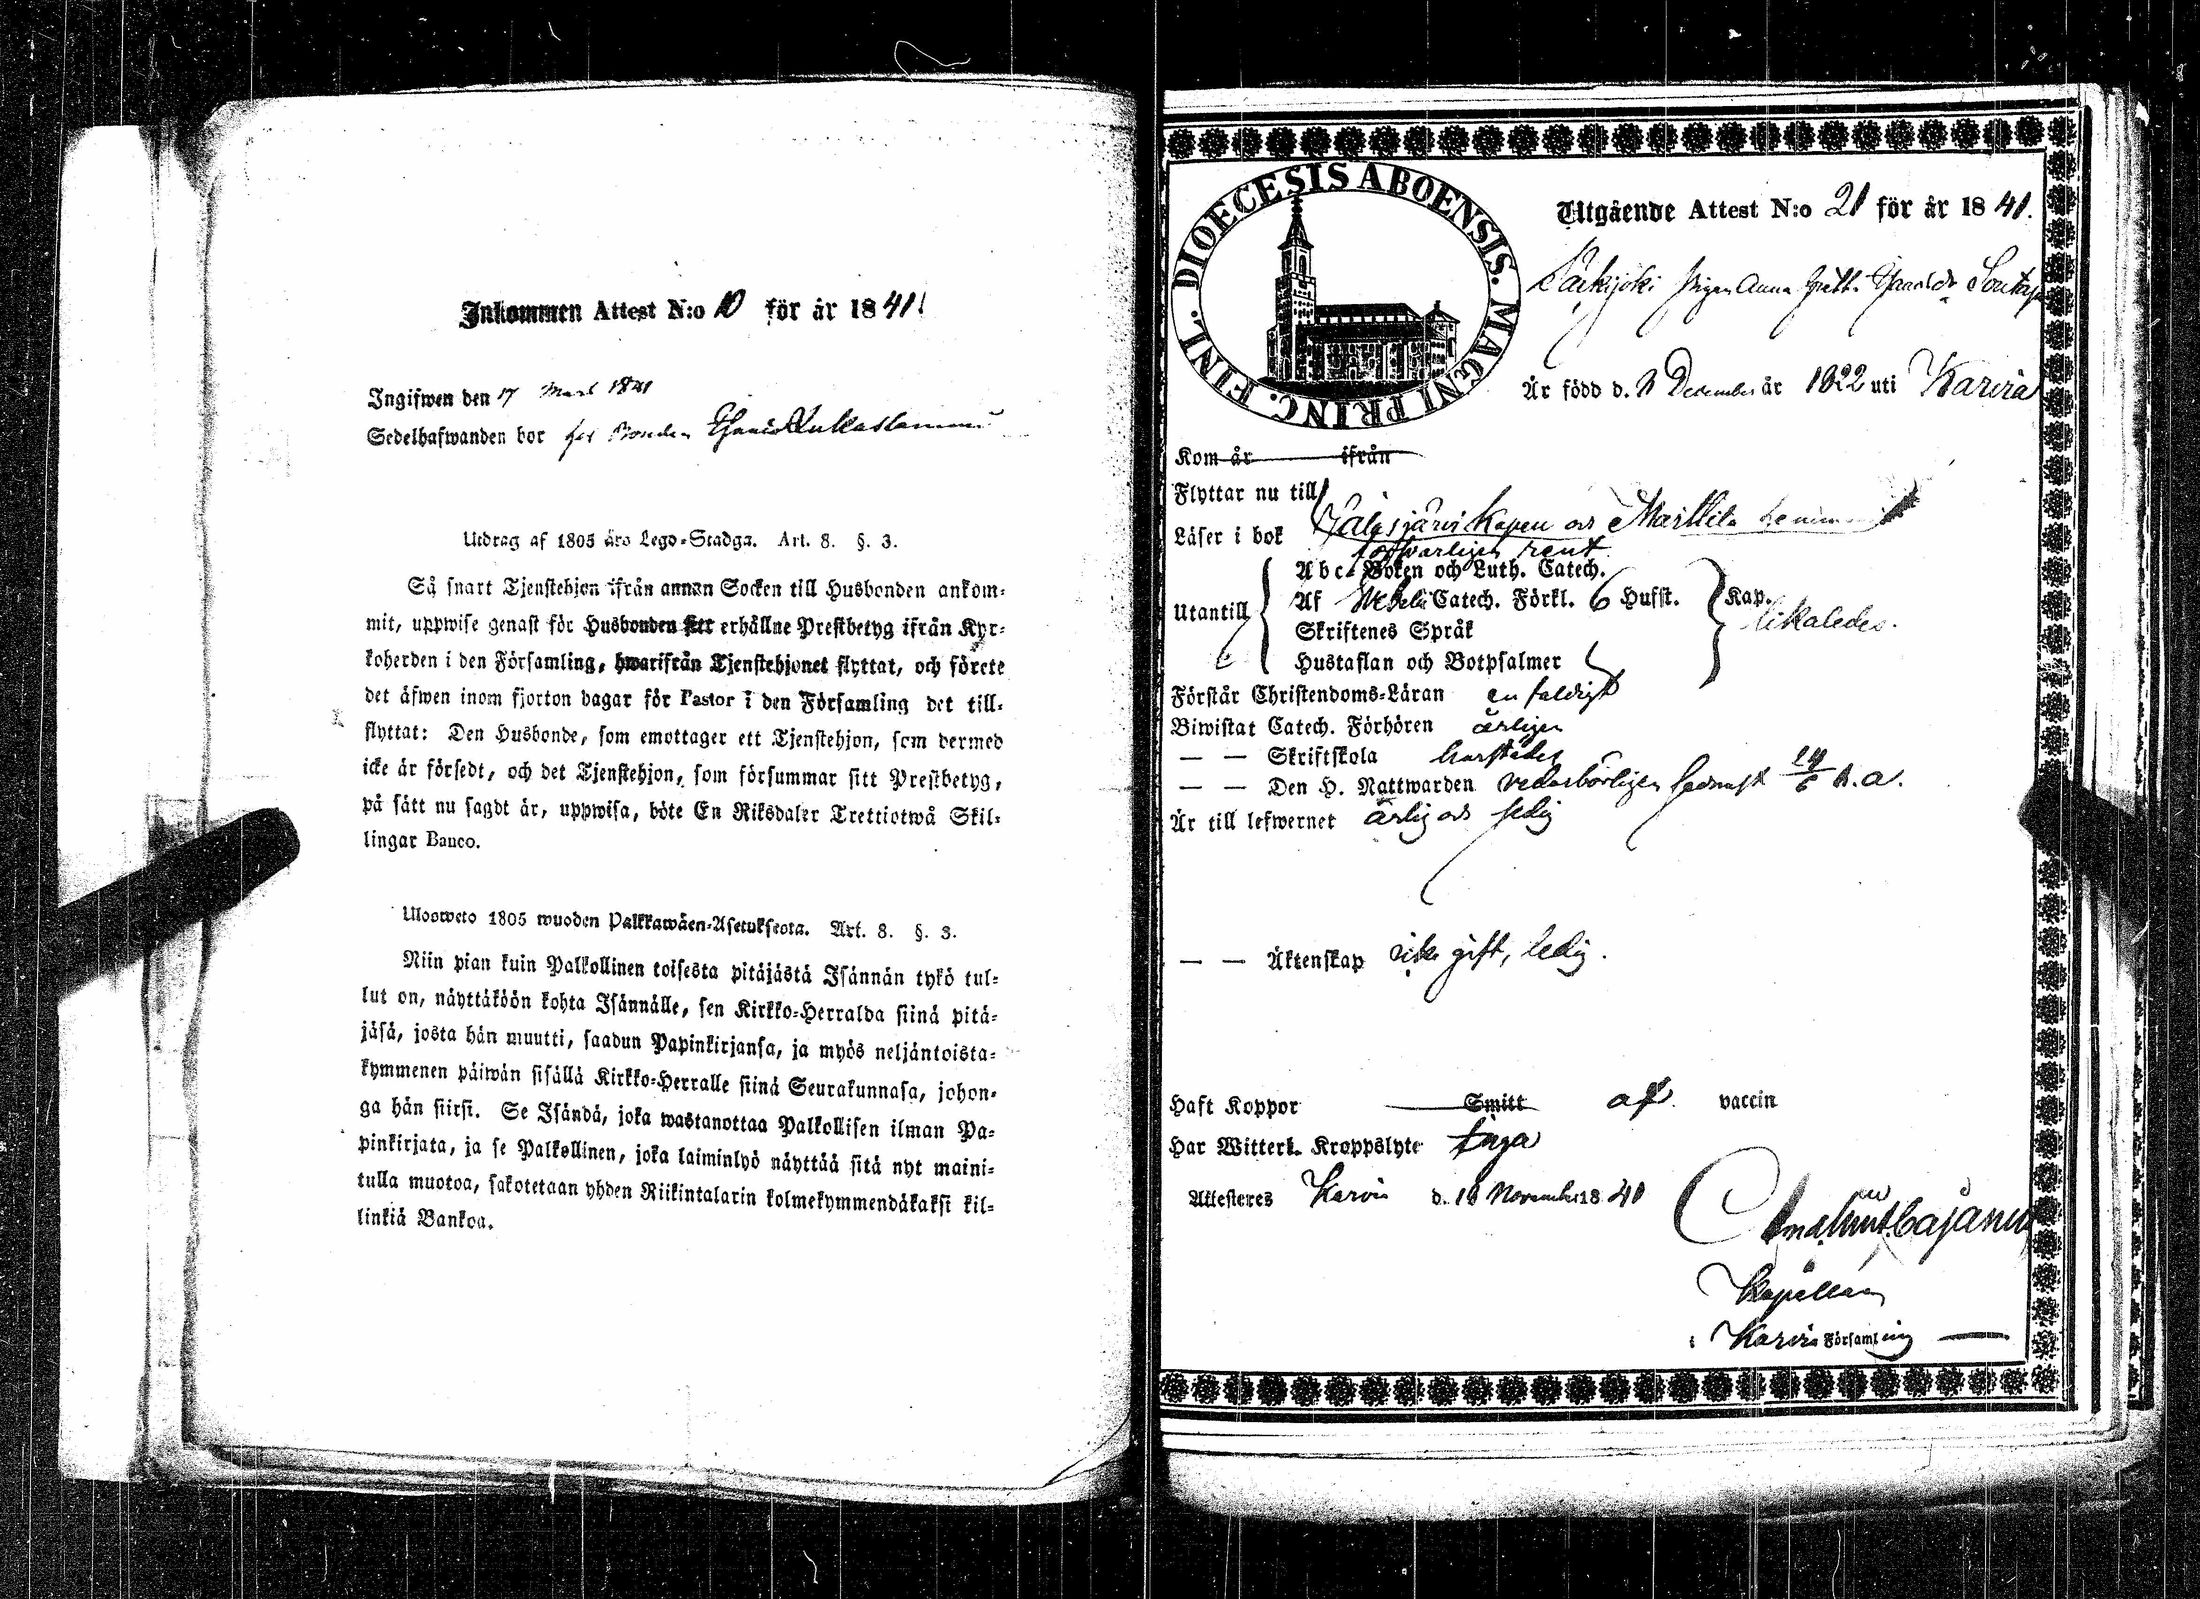 Inkommen Attest N:o 10 för år 1841
Ingifwen den 17 1841
Sedelhafwanden bor Bonden
Utdrag af 1805 års Lego-Stadga. Art. 8. §. 3.
Så snart Tjenstehjon ifrån annan Socken till Husbonden ankom-
mit, uppwise genast för Husbonden sitt erhållne Prestbetyg ifrån Kyr-
koherden i den Församling, hwarifrån Tjenstehjonet flyttat, och förete
det äfwen inom fjorton dagar för Pastor i den Församling det till-
flyttat: Den Husbonde, som emottager ett Tjenstehjon, som dermed
icke är försedt, och det Tjenstehjon, som försummar sitt Prestbetyg,
på sätt nu sagdt är, uppwisa, böte En Riksdaler Trettiotwå Skil-
lingar Banco.
Ulosweto 1805 wuoden Palkkawäen-Asetuksesta. Art. 8. §. 3.
Niin pian kuin Palkollinen toisesta pitäjästä Isännän tykö tul-
lut on, näyttäköön kohta Isännälle, sen Kirkko-Herralda siinä pitä-
jäsä, josta hän muutti, saadun Papinkirjansa, ja myös neljäntoista-
kymmenen päiwän sisällä Kirkko-Herralle siinä Seurakunnasa, johon-
ga hän siirsi. Se Isändä, joka wastanottaa Palkollisen ilman Pa-
pinkirjata, ja se Palkollinen, joka laiminlyö näyttää sitä nyt maini-
tulla muotoa, sakotetaan yhden Riikintalarin kolmekymmendäkaksi kil-
linkiä Bankoa.
DIOECESIS ABOENSIS. MAGNI PRINC. FINL.
Utgående Attest N:o 21 för år 1841.
Pigan Anna
Är född d. December år 1822 uti Karvia
Kom år ifrån
Flyttar nu till
Jalasjärvi Kapell och
Läser i bok
försvarligen rent
Abc-Boken och Luth. Catech.
Utantill Af Catech. Förkl. 6 Husst. Kap. likaledes.
Skriftenes Språk
Hustaflan och Botpsalmer
Förstår Christendoms-Läran enfaldigt
Biwistat Catech. Förhören årligen
— — Skriftskola
— — Den H. Nattwarden vederbörligen senast d. a.
Är till lefwernet ärlig och
— — Äktenskap icke gift, ledig.
Haft Koppor Smitt af vaccin
Har Witterl. Kroppslyte Inga
Attesteres Karvia d. November 1841
Cajanus
Kapellan
i Karvia Församling